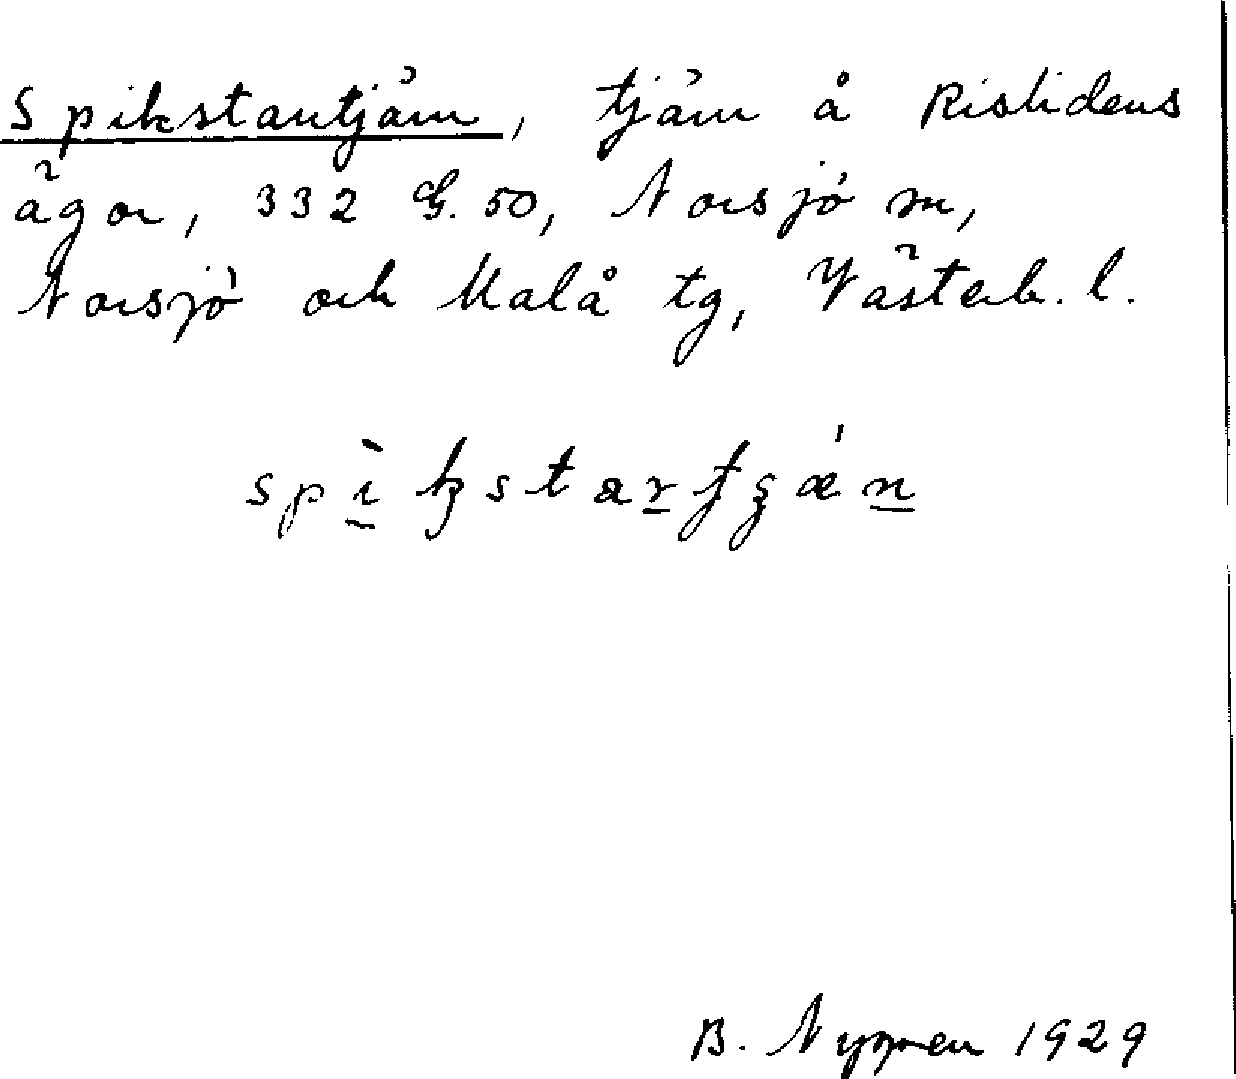 Spikstartjärn, tjärn å Rislidens
ägor, 332 G. 50, Norsjö sn,
Norsjö och Malå tg, Västerb. l.
B. Nygren 1929